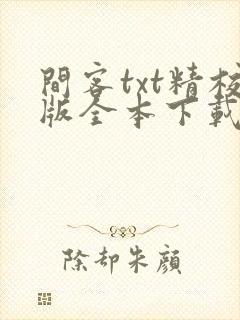 間客txt精校
版全本下載
除却朱顔